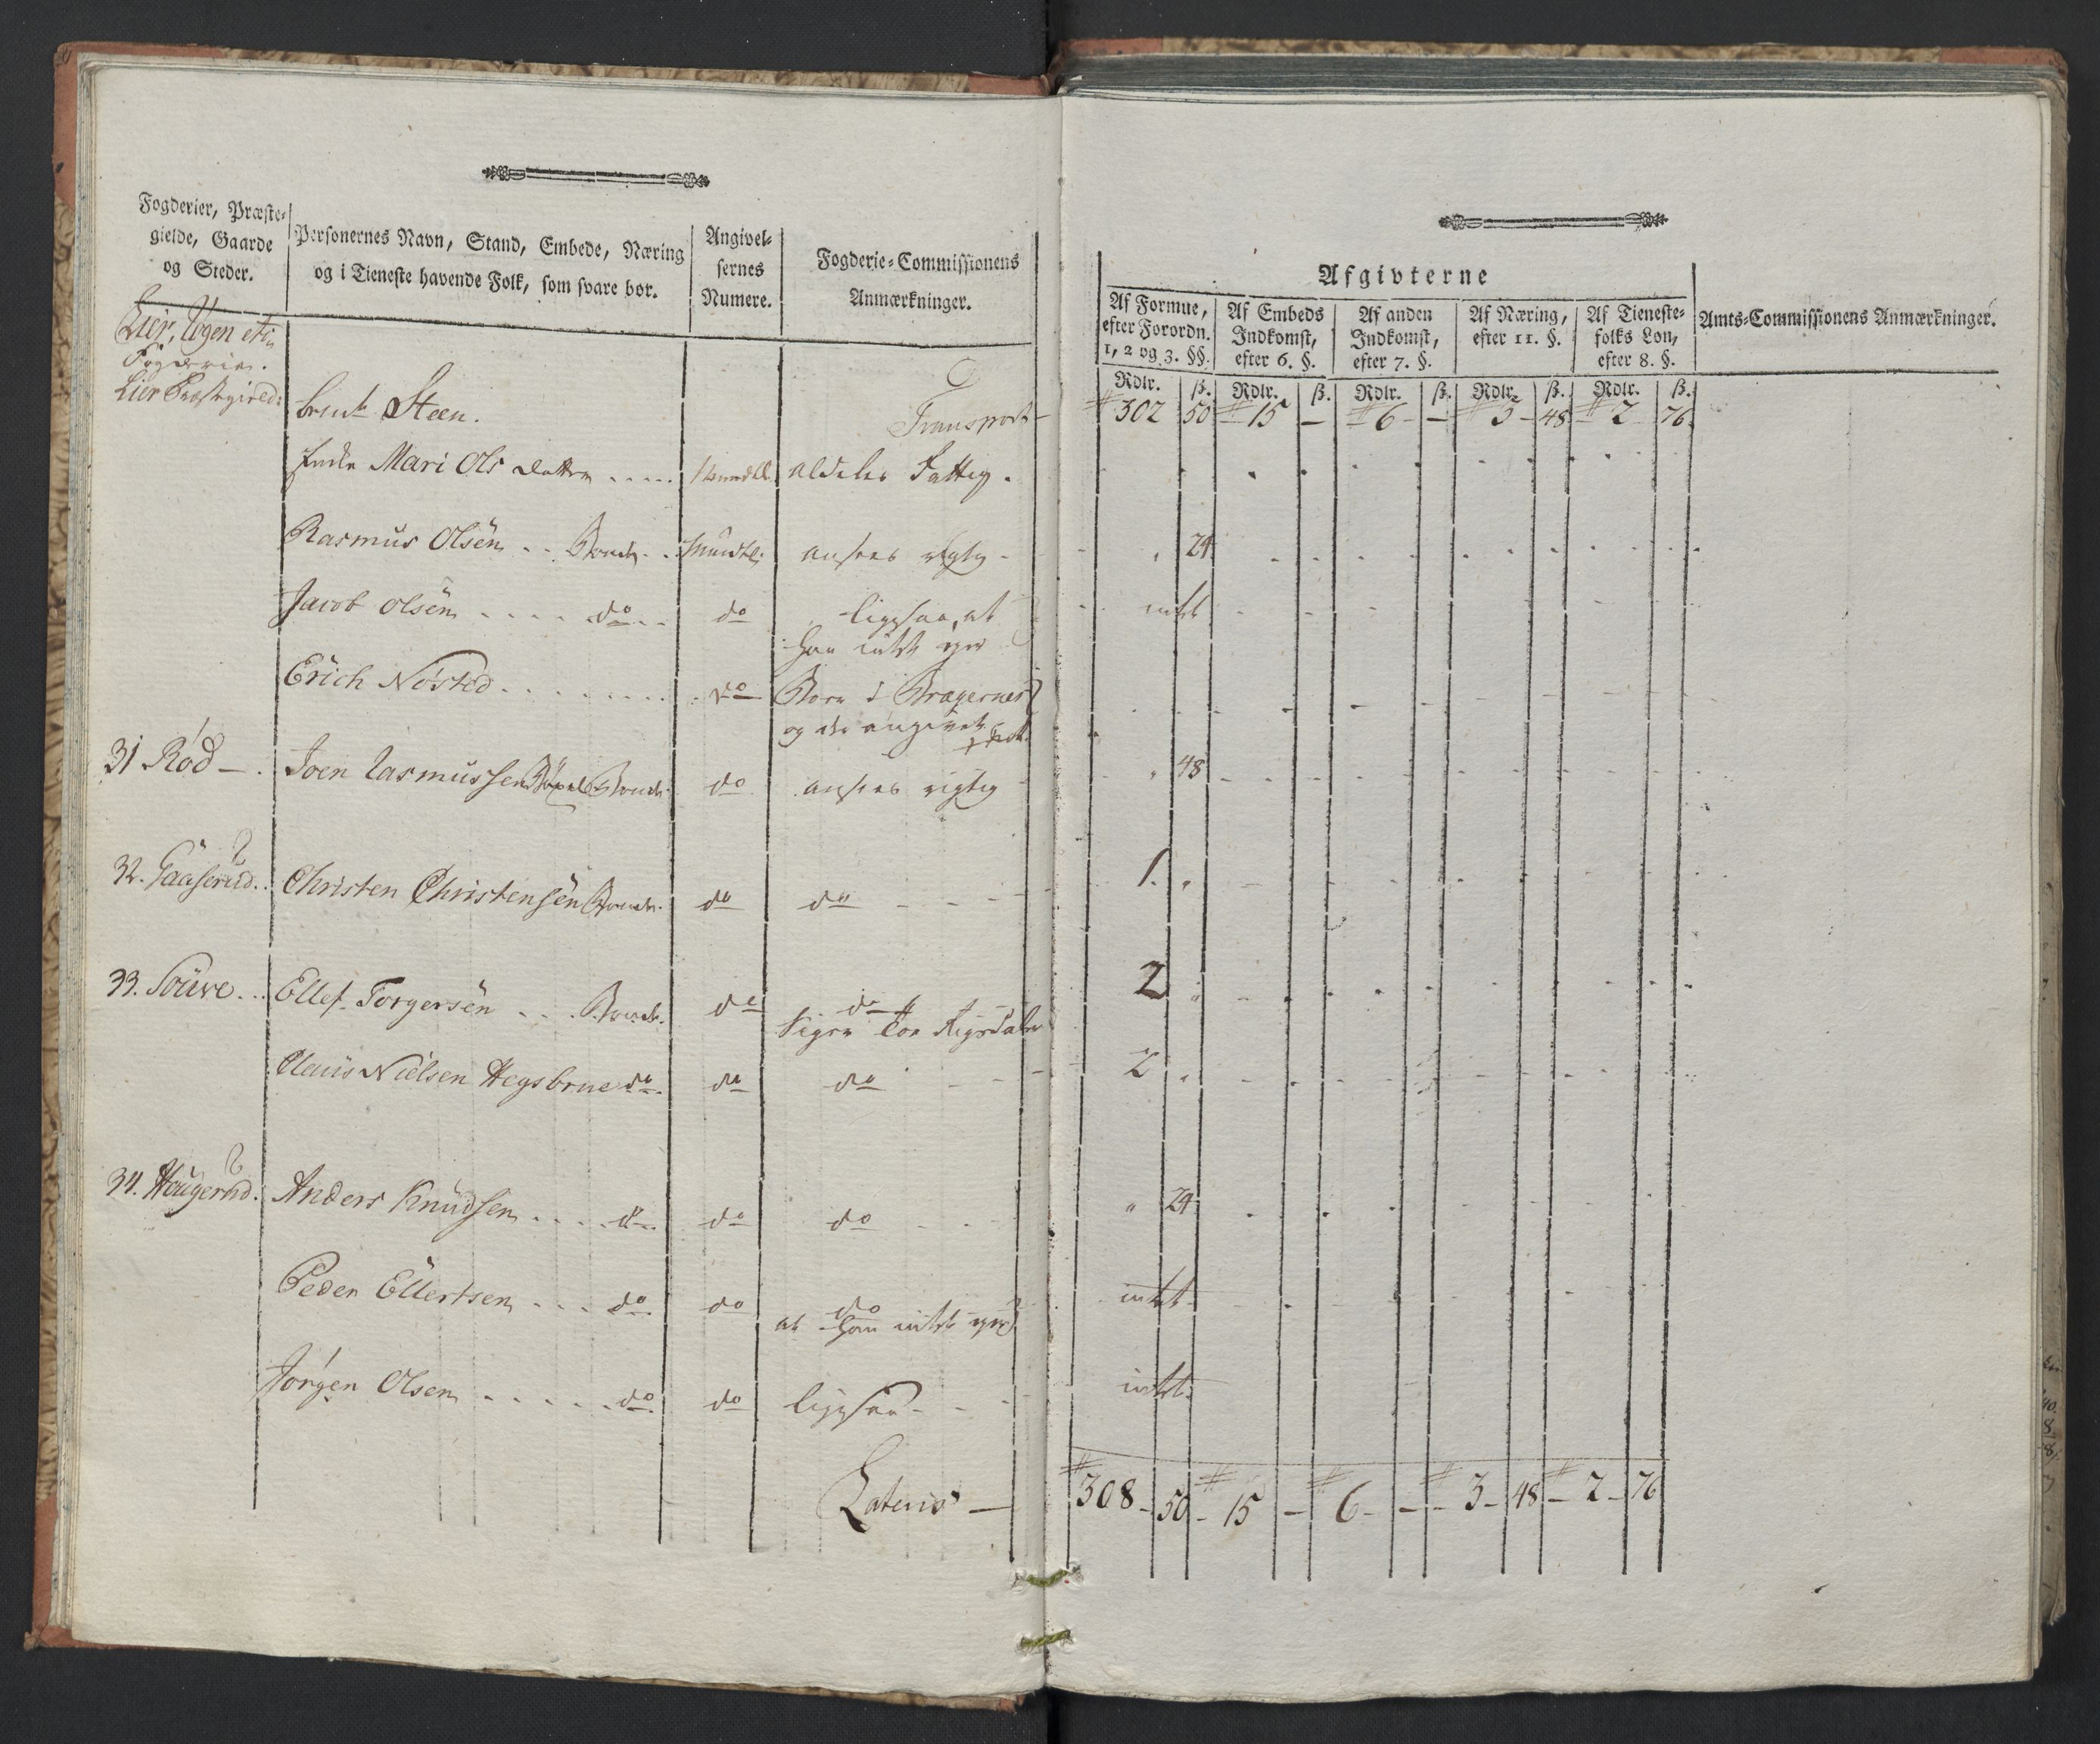 Fogderier, Præste-
gielde, Gaarde
og Steder.
Personernes Navn, Stand, Embede, Næring
og i Tieneste havende Folk, som svare bør.
Angivel-
sernes
Numere.
Fogderie-Commissionens
Anmærkninger.
Afgivterne
Af Formue,
efter Forordn.
1, 2 og 3. §§.
Af Embeds
Indkomst,
efter 6. §.
Af anden
Indkomst,
efter 7. §.
Af Næring,
efter 11. §.
Af Tieneste-
folks Løn,
efter 8. §.
Amts-Commissionens Anmærkninger.
Rdlr. ß. Rdlr. ß. Rdlr. ß. Rdlr. ß. Rdlr. ß.
Lier,
Fogderie.
Lier Præstegield:
Steen.
Transport — 302 50 15 — 6 — 3 48 2 76
Enke Mari Ols datter ..... aldeles Fattig.
Rasmus Olsen .. Bonde .. mundtl. ansees rigtig - " 24
Jacob Olsen .... do .. do ligesaa, at intet
han intet eyer
Erich Nøsted ......... do Boer i Bragernes
og der angivet
31 Rød — . Joen Rasmussen Bonde do ansees rigtig " 48
32. Gaaserud .. Christen Christensen Bonde. do do - - - 1. "
33. Souve ... Ellef Torgersen ... Bonde. do do 2 "
siger Toe Rigsdaler
Claus Nielsen Hegsbroe do. do do - - - 2 "
34. Haugerud. Anders Knudsen .... do. do do - - - " 24
Peder Ellertsen ... do do do intet
at han intet eyer
Jørgen Olsen ...... do. do ligesaa - - - intet.
Lateris — 308 50 15 — 6 — 3 48 2 76